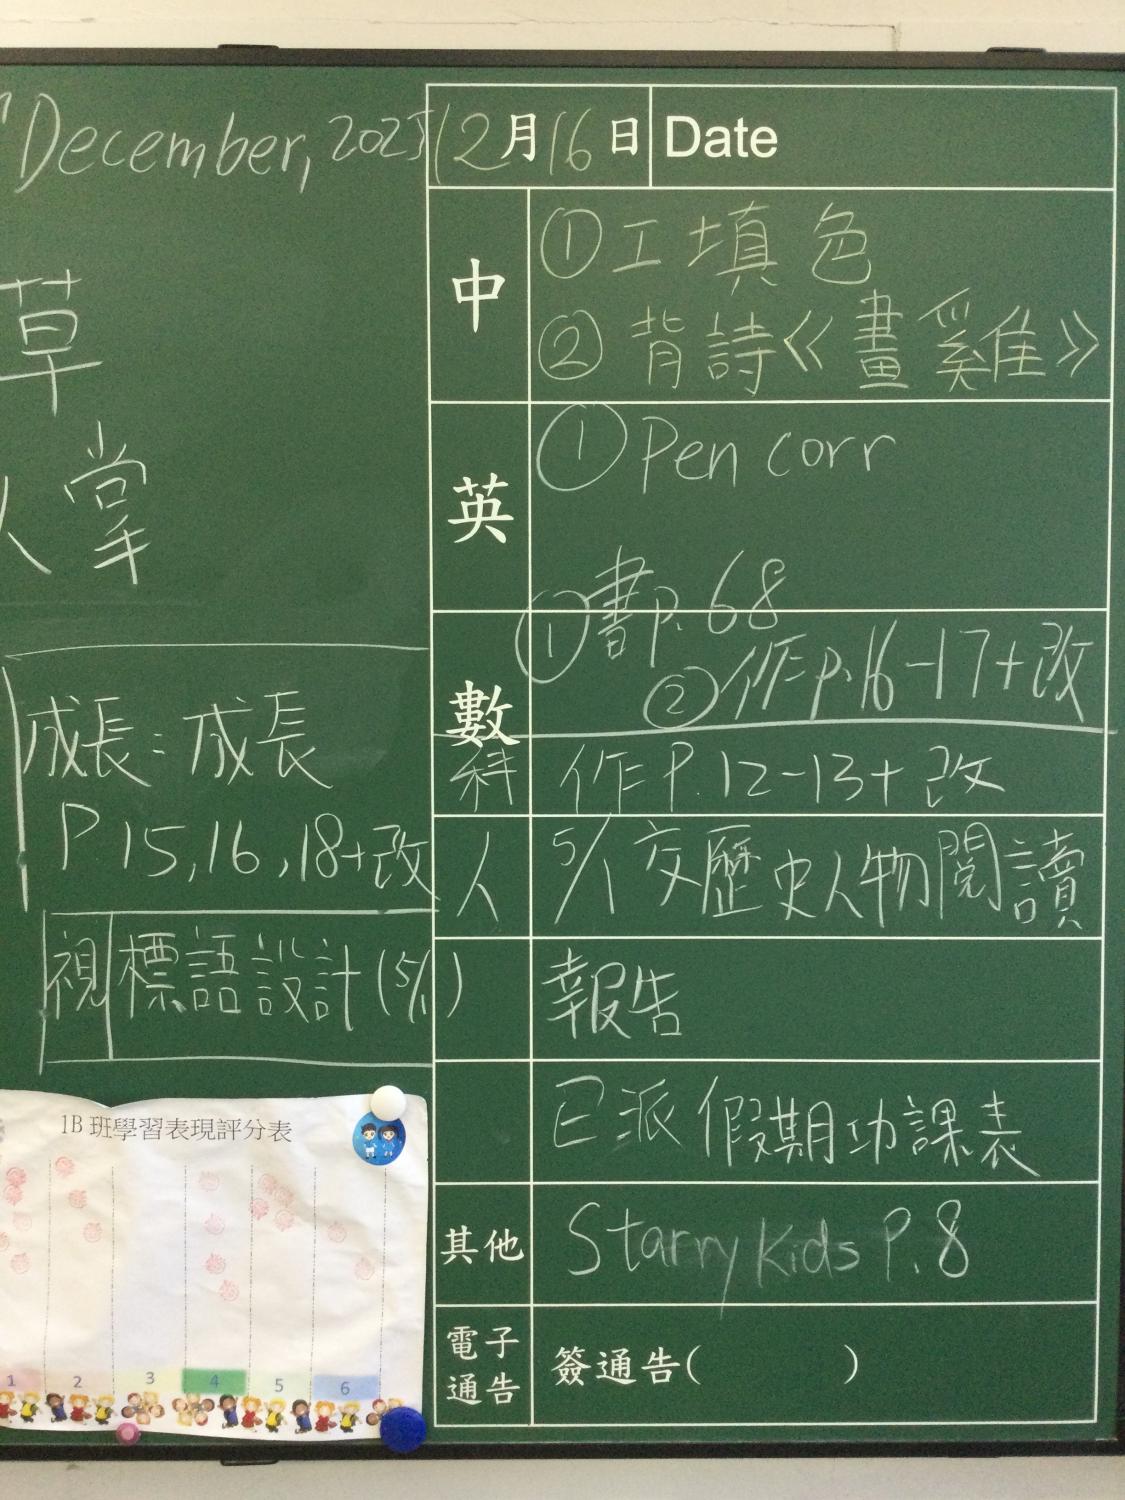 December, 2025
草
人掌
成長：成長
P 15,16,18+改
視 標語設計(5/1)
1B 班學習表現評分表
1 2 3 4 5 6
12月16日 Date
中 ①工填色
②背詩《畫雞》
英 ①Pen corr
數 ①書P.68
②作P.16-17+改
科 作P.12-13+改
人 5/1交歷史人物閱讀
報告
已派假期功課表
其他 Starry Kids P.8
電子通告 簽通告( )